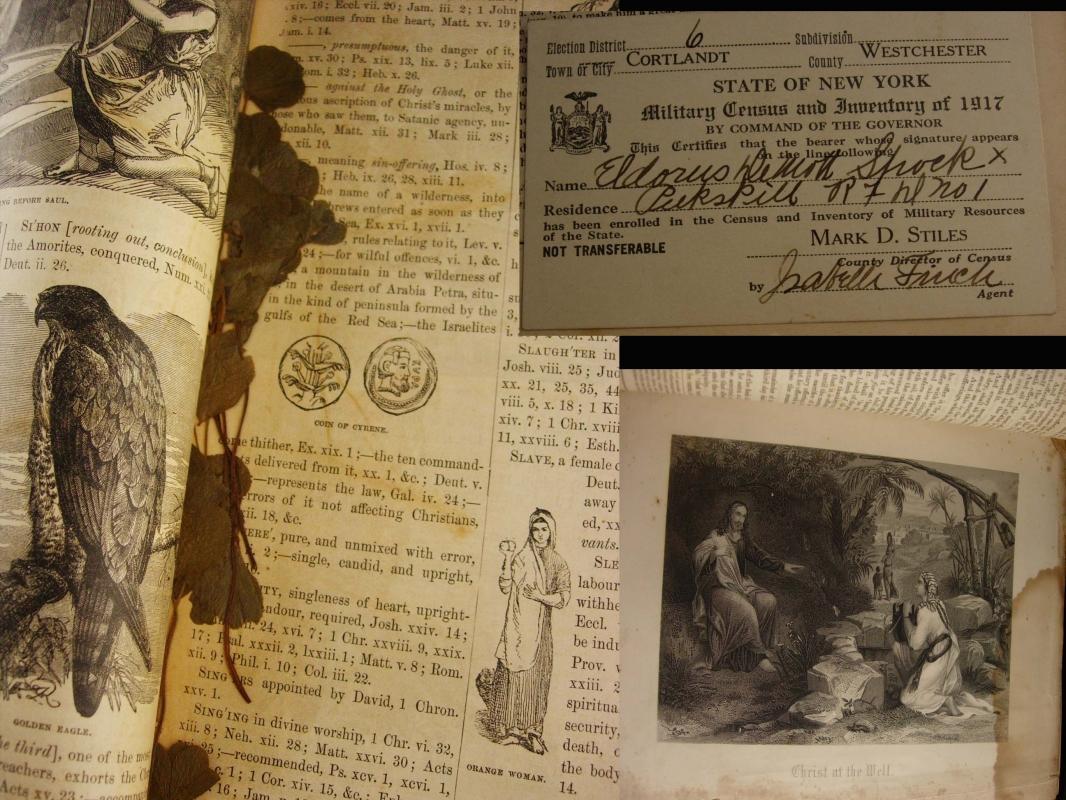 NG BEFORE SAUL.
SI'HON [rooting out, conclusion],
the Amorites, conquered, Num. xxi.
Deut. ii. 26.
GOLDEN EAGLE.
the third], one of the most
reachers, exhorts the
Acts xv. 23;—accomp
xiv. 16; Eccl. vii. 20; Jam. iii. 2; 1 John
8;—comes from the heart, Matt. xv. 19;
Jam. i. 14.
presumptuous, the danger of it,
xv. 30; Ps. xix. 13, lix. 5; Luke xii.
i. 32; Heb. x. 26.
against the Holy Ghost, or the
ascription of Christ's miracles, by
who saw them, to Satanic agency, un-
donable, Matt. xii. 31; Mark iii. 28;
xii. 10.
meaning sin-offering, Hos. iv. 8;
Heb. ix. 26, 28, xiii. 11.
he name of a wilderness, into
brews entered as soon as they
Sea, Ex. xvi. 1, xvii. 1.
rules relating to it, Lev. v.
24;—for wilful offences, vi. 1, &c.
a mountain in the wilderness of
in the desert of Arabia Petra, situ-
in the kind of peninsula formed by the
gulfs of the Red Sea;—the Israelites
COIN OF CYRENE.
come thither, Ex. xix. 1;—the ten command-
delivered from it, xx. 1, &c.; Deut. v.
—represents the law, Gal. iv. 24;—
errors of it not affecting Christians,
xii. 18, &c.
ERE', pure, and unmixed with error,
2;—single, candid, and upright,
ITY, singleness of heart, upright-
candour, required, Josh. xxiv. 14;
24, xvi. 7; 1 Chr. xxviii. 9, xxix.
17; Psal. xxxii. 2, lxxiii. 1; Matt. v. 8; Rom.
xii. 9; Phil. i. 10; Col. iii. 22.
SINGERS appointed by David, 1 Chron.
xxv. 1.
SING'ING in divine worship, 1 Chr. vi. 32,
xiii. 8; Neh. xii. 28; Matt. xxvi. 30; Acts
25;—recommended, Ps. xcv. 1, xcvi. 1,
1; 1 Cor. xiv. 15, &c.;
16; Jam.
SLAUGH'TER in
Josh. viii. 25;
xx. 21, 25, 35, 44
viii. 5, x. 18; 1 Ki
xiv. 7; 1 Chr. xviii
11, xxviii. 6; Esth.
SLAVE, a female
Deut.
away
ed, xx
vants.
SLE
labour
withhe
Eccl.
be indu
Prov.
xxiii. 2
spiritua
security,
death,
the body
14.
ORANGE WOMAN.
Election District 6 Subdivision
Town or City CORTLANDT County WESTCHESTER
STATE OF NEW YORK
Military Census and Inventory of 1917
BY COMMAND OF THE GOVERNOR
This Certifies that the bearer whose signature appears
on the line following
Name Eldorus Spock x
Residence Peekskill R F D No 1
has been enrolled in the Census and Inventory of Military Resources
of the State.
NOT TRANSFERABLE
MARK D. STILES
County Director of Census
by Isabelle Finch
Agent
Christ at the Well.